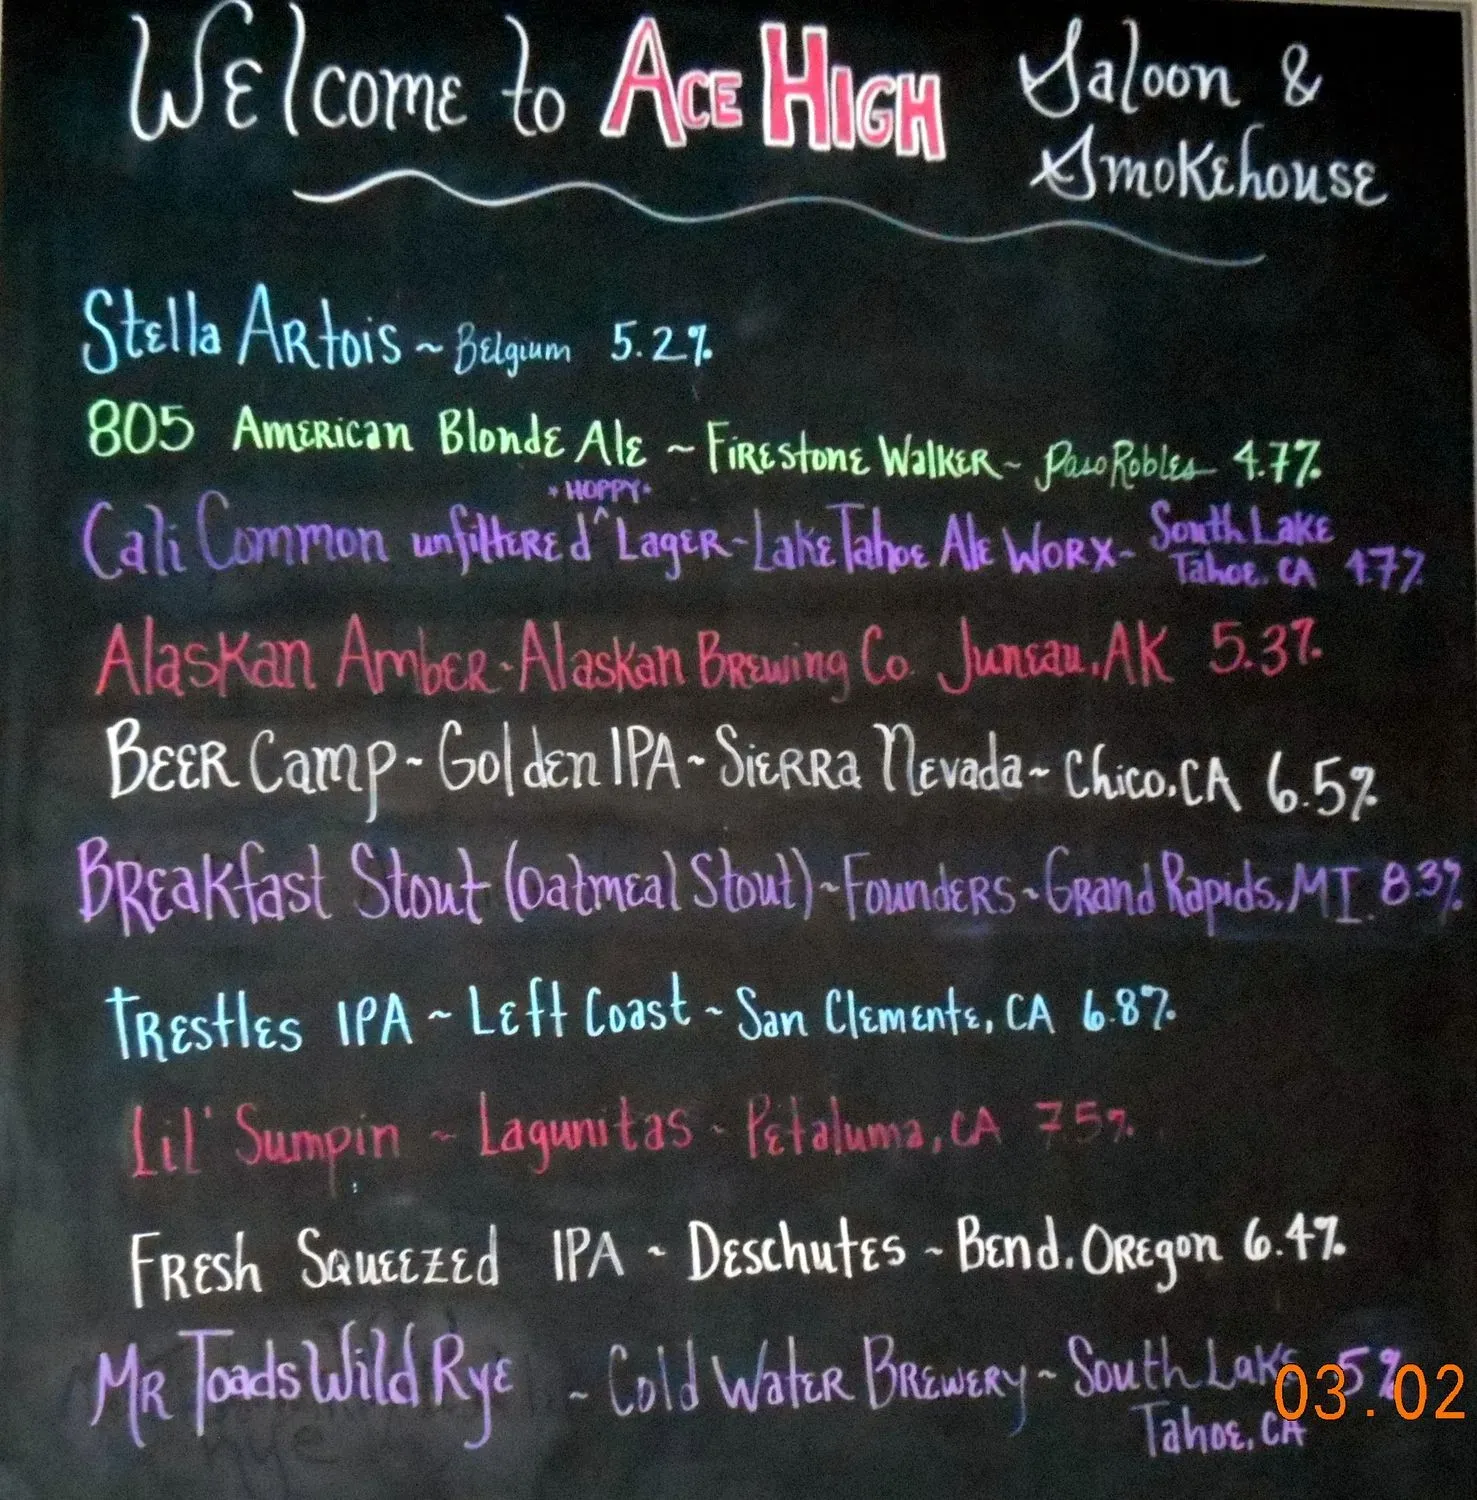 Welcome to ACE HIGH Saloon &
Smokehouse
Stella Artois ~ Belgium 5.2%
805 American Blonde Ale ~ Firestone Walker ~ Paso Robles 4.7%
• HOPPY •
Cali Common unfiltered ^ Lager ~ Lake Tahoe Ale Worx ~ South Lake
Tahoe, CA 4.7%
Alaskan Amber - Alaskan Brewing Co. Juneau, AK 5.3%
Beer Camp ~ Golden IPA ~ Sierra Nevada ~ Chico, CA 6.5%
Breakfast Stout (Oatmeal Stout) ~ Founders ~ Grand Rapids, MI. 8.3%
Trestles IPA ~ Left Coast ~ San Clemente, CA 6.8%
Lil' Sumpin ~ Lagunitas ~ Petaluma, CA 7.5%
Fresh Squeezed IPA ~ Deschutes ~ Bend, Oregon 6.4%
Mr Toads Wild Rye ~ Cold Water Brewery ~ South Lake 5%
Tahoe, CA
03.02